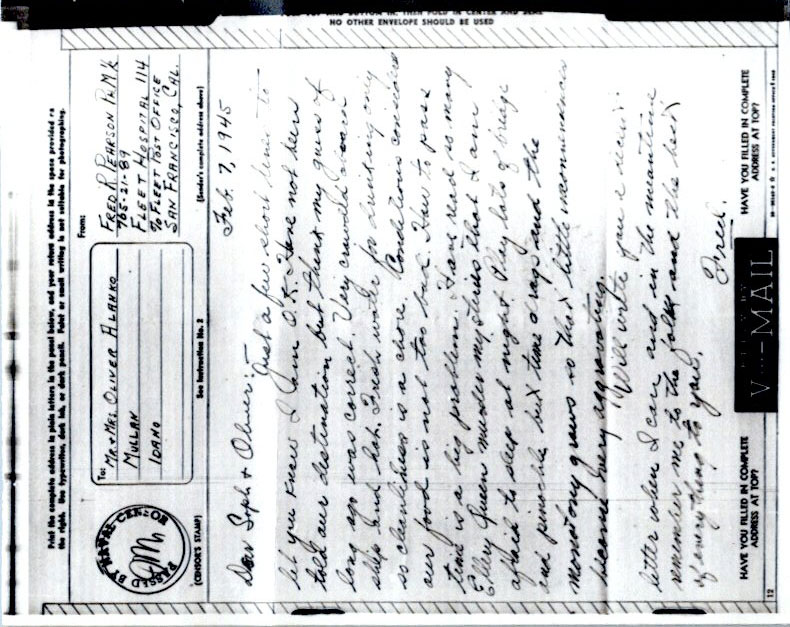 AND BUTTON IN, THEN FOLD IN CENTER AND SEAL
NO OTHER ENVELOPE SHOULD BE USED
Print the complete address in plain letters in the panel below, and your return address in the space provided on
the right. Use typewriter, dark ink, or dark pencil. Faint or small writing is not suitable for photographing.
PASSED BY NAVAL CENSOR
(CENSOR'S STAMP)
To:
MR + MRS OLIVER ALANKO
MULLAN
IDAHO
See Instruction No. 2
From:
FRED R PEARSON
765-21-89
FLEET HOSPITAL 114
% FLEET POST OFFICE
SAN FRANCISCO, CAL.
(Sender's complete address above)
Feb. 7, 1945
Dear + Oliver:-
Just a few short lines to
let you know I am O.K. Have not been
told our destination but think my guess of
long ago was correct. Very crowded aboard
ship and hot. Fresh water for drinking only
so cleanliness is a chore. Conditions considered
our food is not too bad. How to pass
time is a big problem. Have read so many
Ellery Queen murder mysteries that I am
afraid to sleep at night. Play lots of bridge
and pinochle but time drags and the
monotony grows so that little inconveniences
become very aggravating.
Will write you a decent
letter when I can and in the meantime
remember me to the folks and the best
of everything to you.
Fred.
HAVE YOU FILLED IN COMPLETE
ADDRESS AT TOP?
V···—MAIL
HAVE YOU FILLED IN COMPLETE
ADDRESS AT TOP?
12